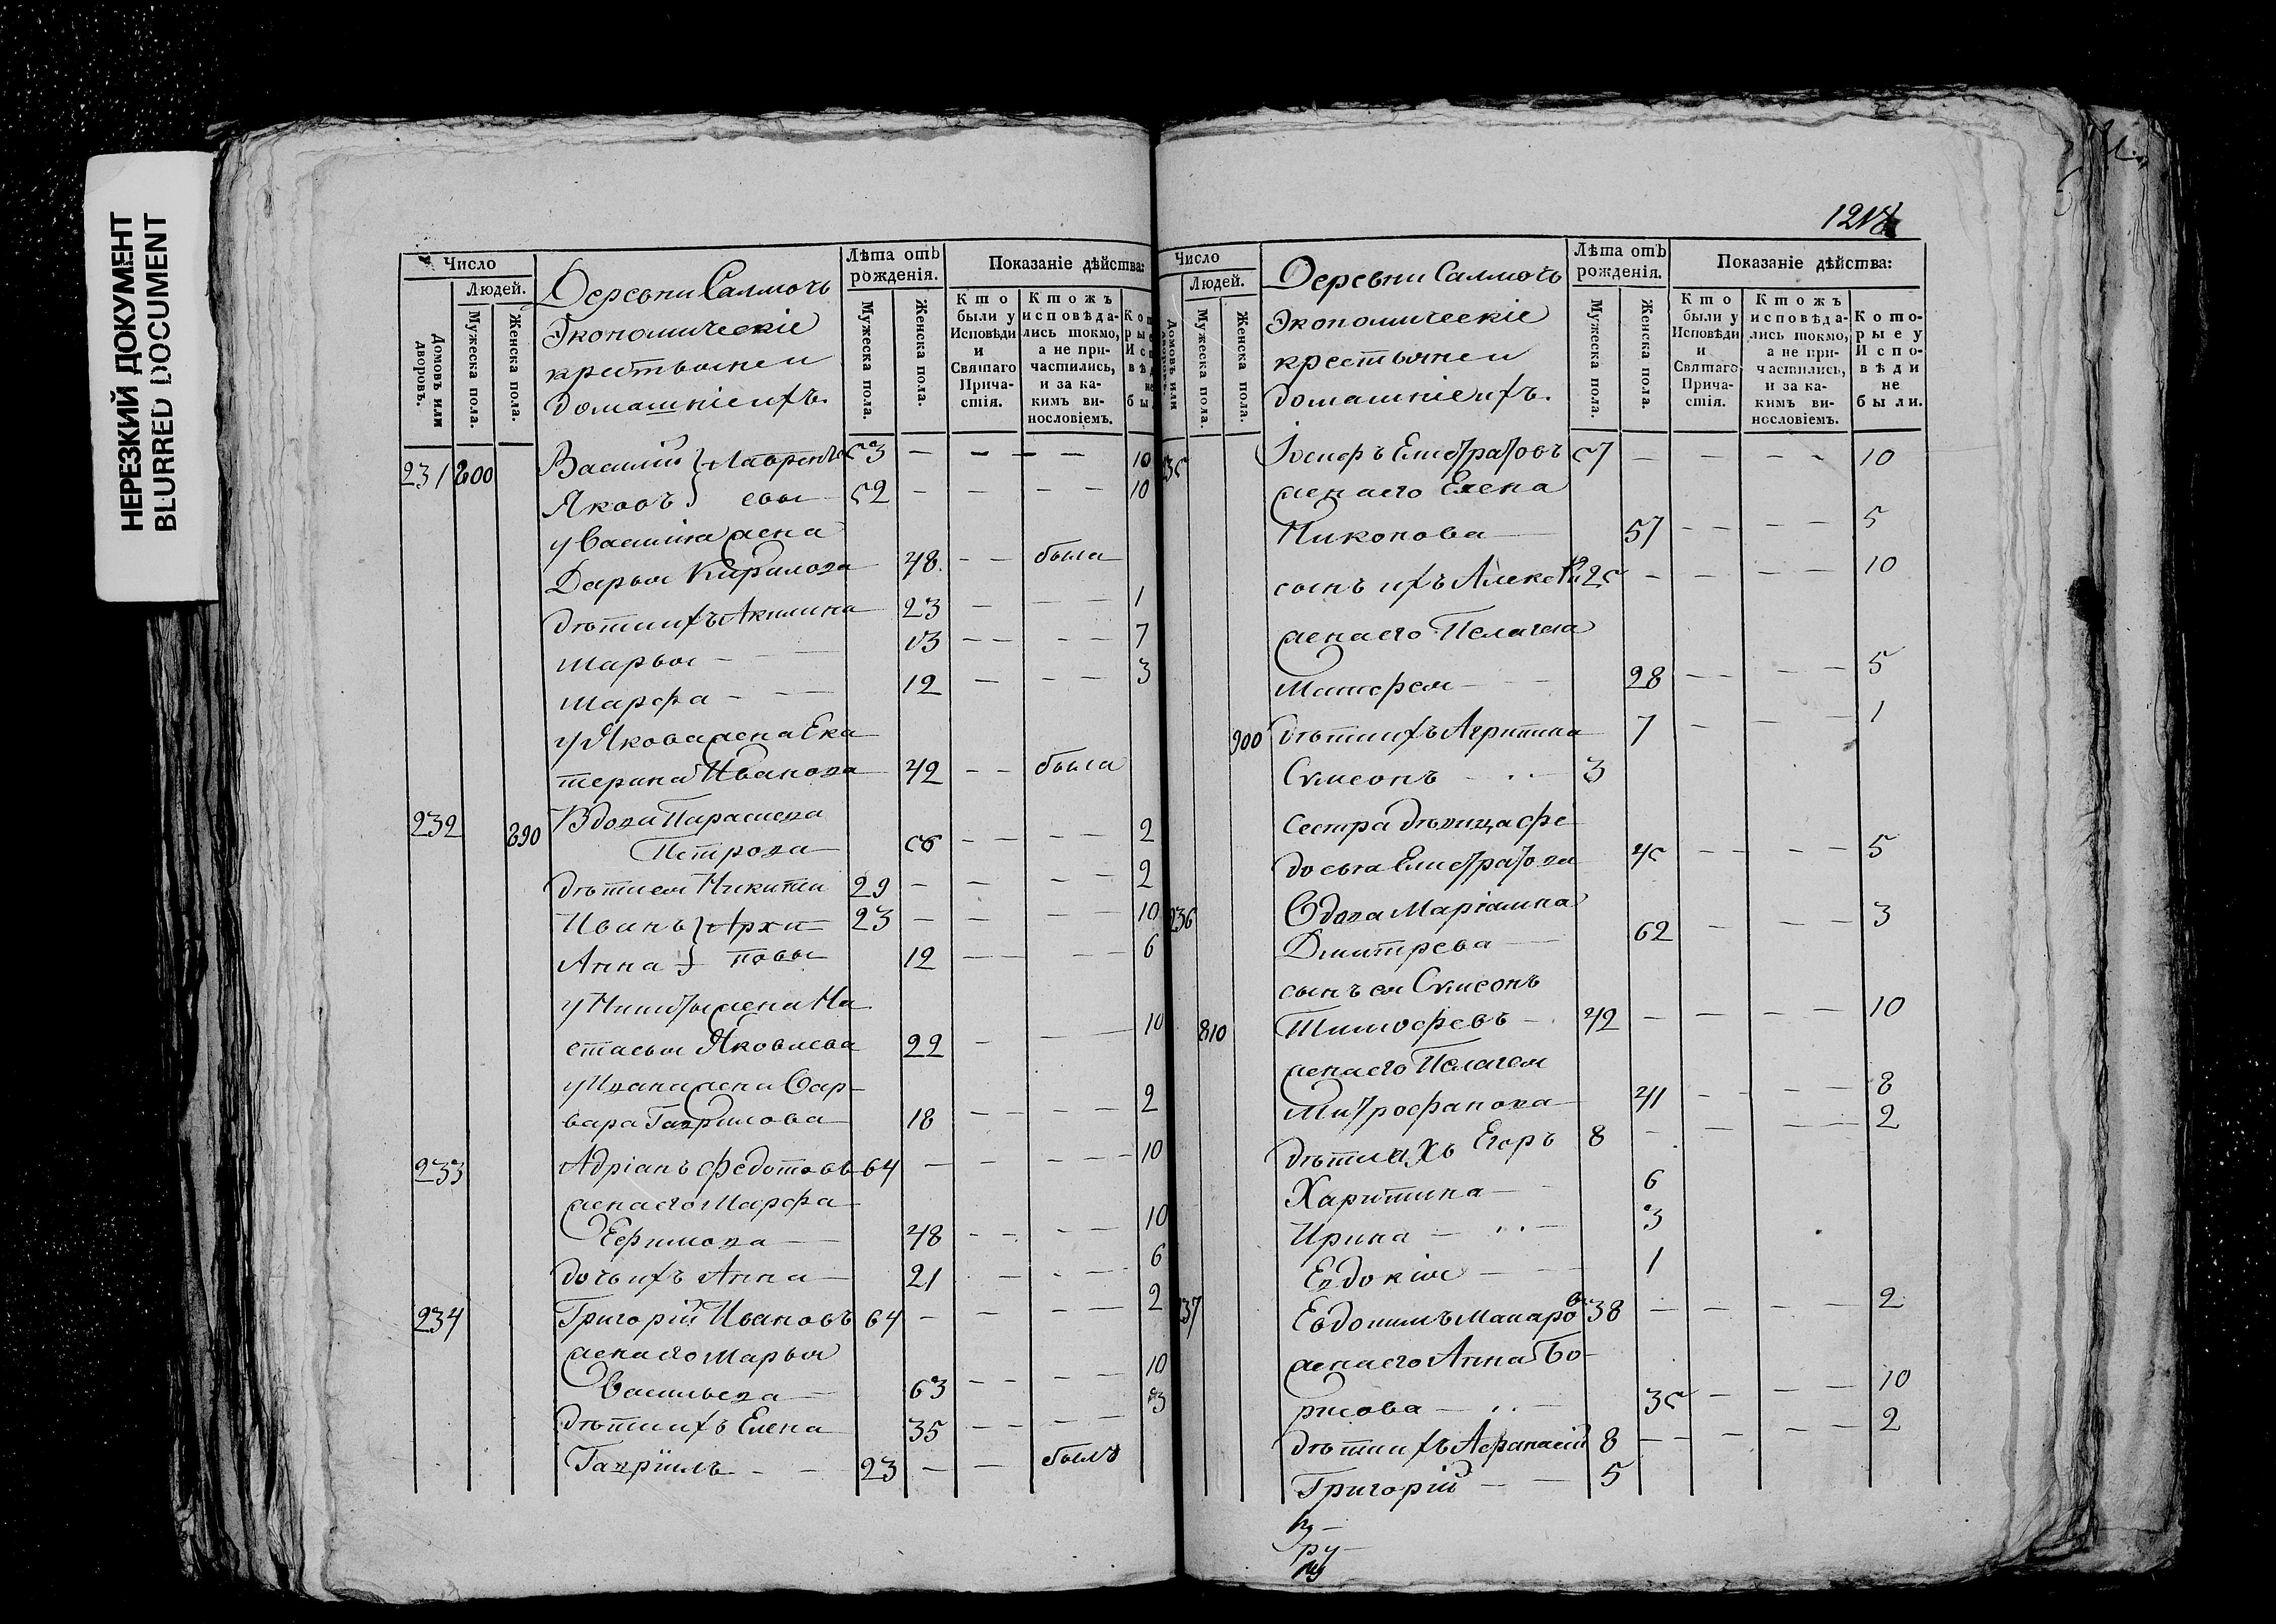 НЕРЕЗКИЙ ДОКУМЕНТ
BLURRED DOCUMENT
Число
Людей.
Домовъ или дворовъ.
Мужеска пола.
Женска пола.
Деревни Салмочь
Экономическіе
крестьяне и
домашніе ихъ.
Лѣта отъ рожденія.
Мужеска пола.
Женска пола.
Показаніе дѣйства:
Кто были у Исповѣди и Святаго Причастія.
Ктожъ исповѣдались токмо, а не причастились, и за какимъ винословіемъ.
231 800 Василій } Лаврентъ 53 — — — — 10
Яковъ } евы 52 — — — — 10
у Василия жена
Дарья Кирилова 48 — — была
дѣти ихъ Акилина 23 — — — 1
Марья — 13 — — — — 7
Марфа — — 12 — — — 3
у Якова жена Ека
терина Иванова 42 — — была
232 890 Вдова Параскева
Петрова 56 — — — — 2
дѣти ея Никита 29 — — — — 2
Иванъ } Архи 23 — — — — 10
Анна } повы 12 — — — — 6
у Никиты жена На
стасья Яковлева 22 — — — 10
у Ивана жена Вар-
вара Гаврилова 18 — — — — 2
233 Адріанъ Федотовъ 64 — — — — 10
жена его Марфа
Ефимова — 48 — — — — 10
дочь ихъ Анна 21 — — — 6
234 Григорій Ивановъ 64 — — — — 2
жена его Марья
Васильева 63 — — — — 10
дѣти ихъ Елена 35 — — — — 3
Гавріилъ — — 23 — — былъ
1218
Число
Людей.
Домовъ или дворовъ.
Мужеска пола.
Женска пола.
Деревни Салмочь
Экономическіе
крестьяне и
домашніе ихъ.
Лѣта отъ рожденія.
Мужеска пола.
Женска пола.
Показаніе дѣйства:
Кто были у Исповѣди и Святаго Причастія.
Ктожъ исповѣдались токмо, а не причастились, и за какимъ винословіемъ.
Которые у Исповѣди не были.
35 Іосифъ Елистратовъ 57 — — — — 10
жена его Елена
Никонова — 57 — — — — 5
сынъ ихъ Алексѣй 25 — — — — 10
жена его Пелагея
Матфея — — 28 — — — — 5
900 дѣти ихъ Агрипина 7 — — — 1
Симеонъ — 3
Сестра дѣвица Фе
досья Елистратова 45 — — — — 5
236 Вдова Маріамна
Дмитрева — 62 — — — 3
сынъ ея Симеонъ
810 Тимофевъ — 42 — — — — 10
жена его Пелагея
Митрофанова 41 — — — — 8
дѣти ихъ Егоръ 8 — — — — 2
Харитина — 6
Ирина — 3
Евдокія — — 1
37 Евдокимъ Макаровъ 38 — — — — 2
жена его Анна Бо-
рисова — 35 — — — 10
дѣти ихъ Афанасій 8 — — — — 2
Григорій — — 5
ру-